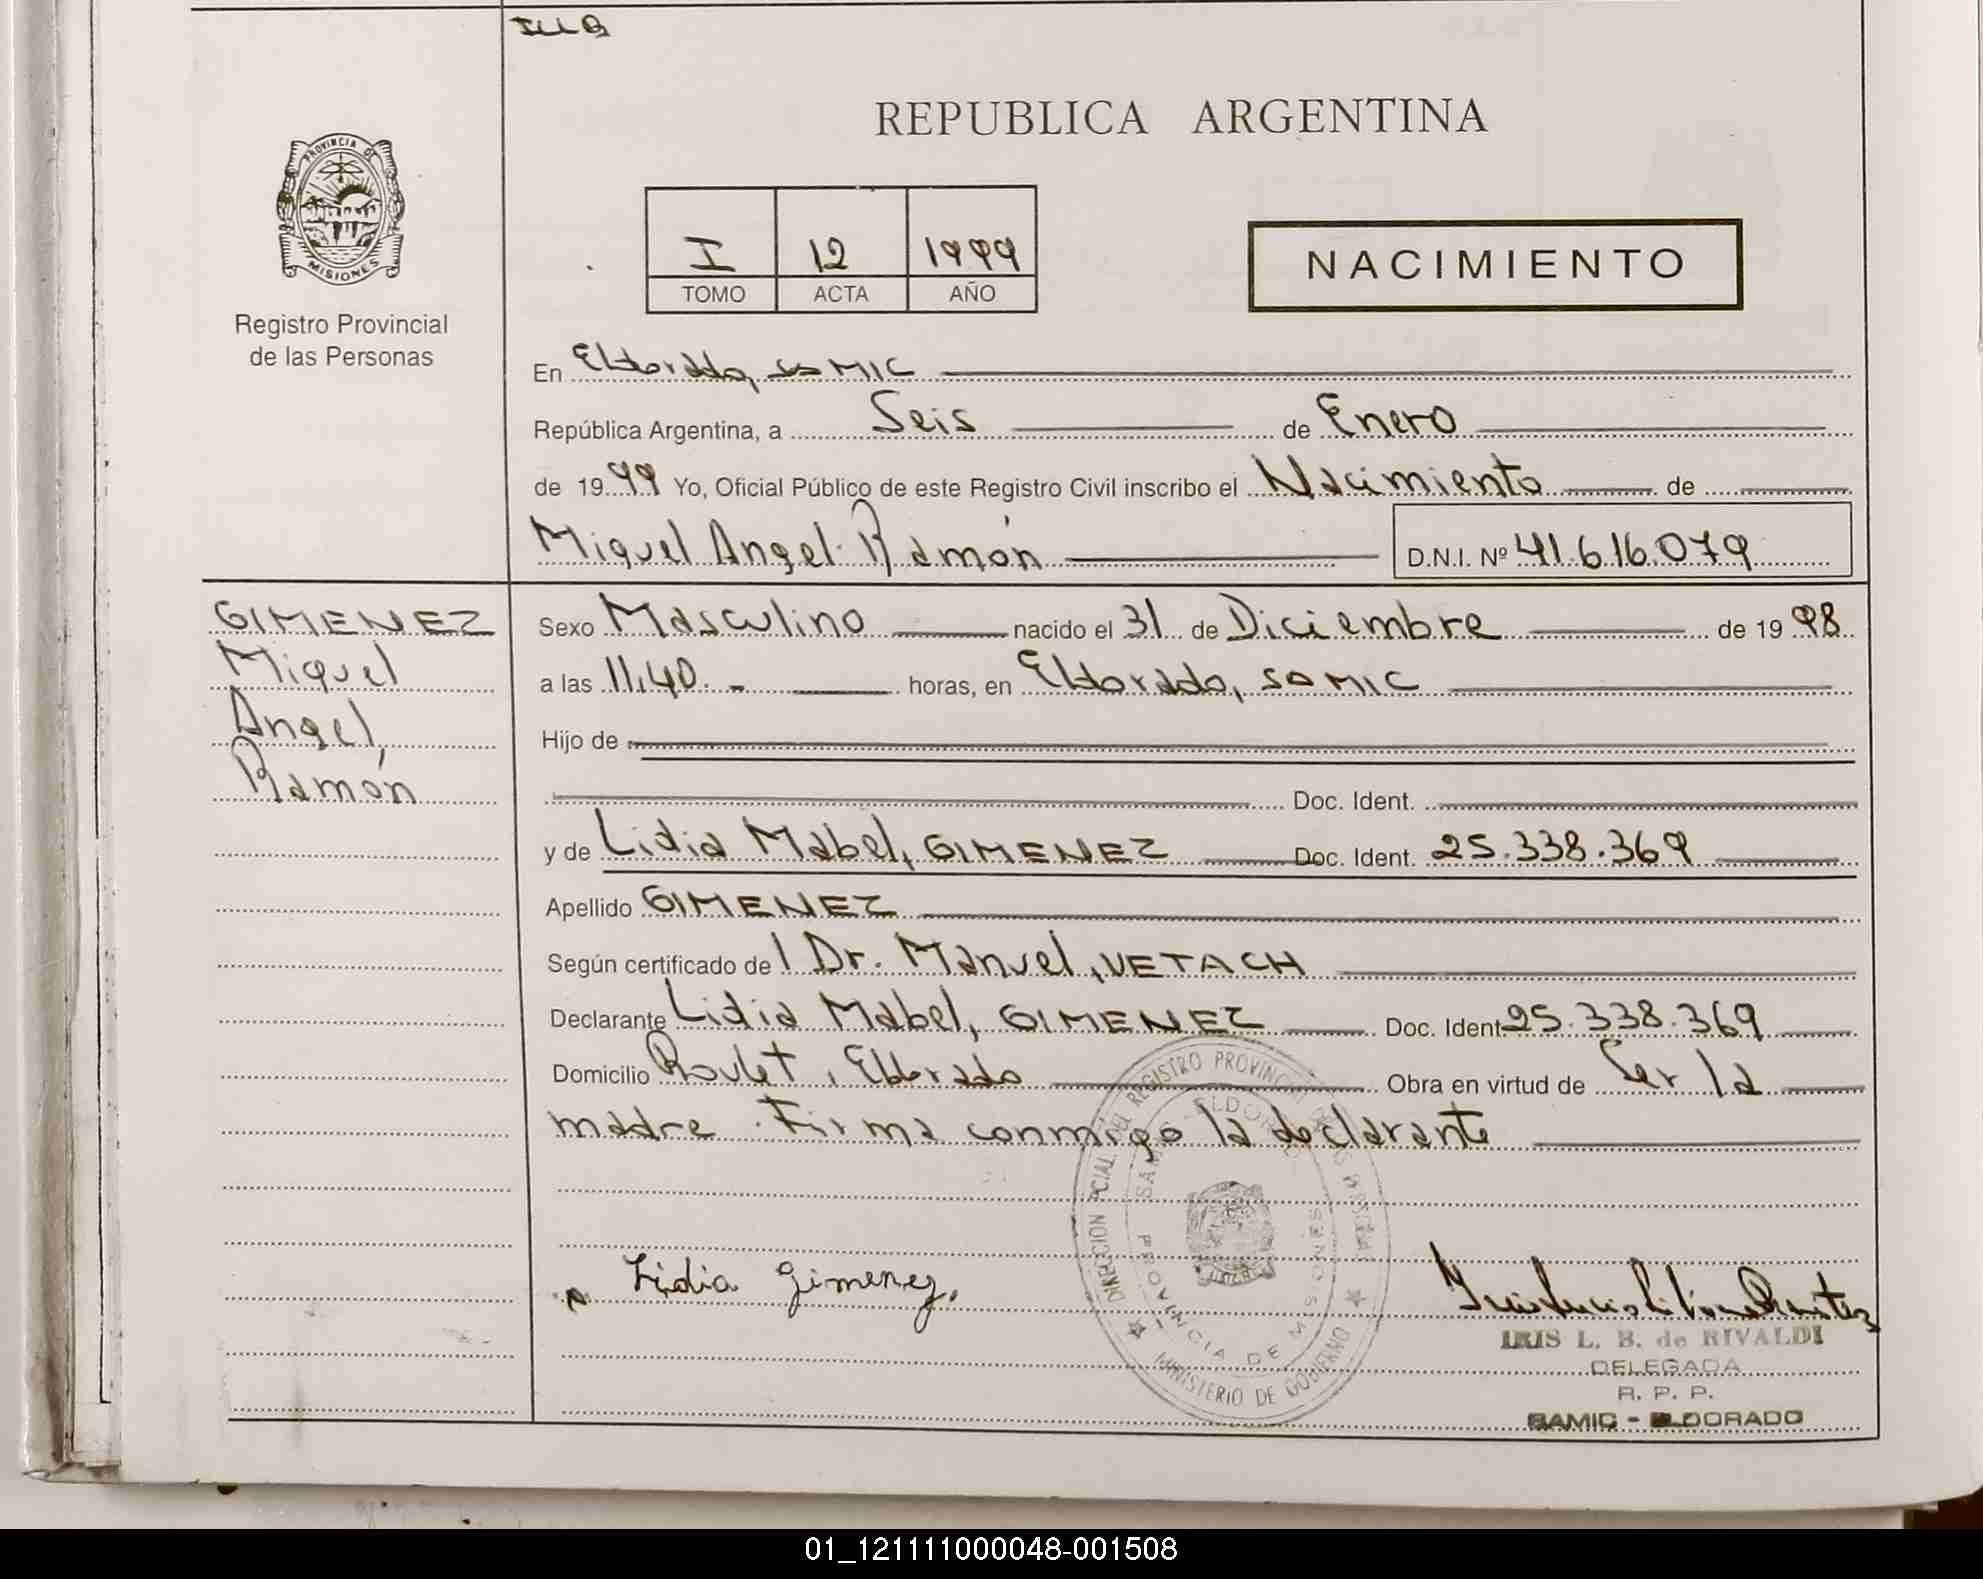 ILLB
REPUBLICA ARGENTINA
PROVINCIA DE
MISIONES
Registro Provincial
de las Personas
I 12 1999
TOMO ACTA AÑO
NACIMIENTO
En Eldorado, SAMIC
República Argentina, a Seis de Enero
de 1999 Yo, Oficial Público de este Registro Civil inscribo el Nacimiento de
Miguel Angel Ramón D.N.I. Nº 41.616.079
GIMENEZ
Miguel
Angel,
Ramón
Sexo Masculino nacido el 31 de Diciembre de 1998
a las 11,40.- horas, en Eldorado, SAMIC
Hijo de
Doc. Ident.
y de Lidia Mabel, GIMENEZ Doc. Ident. 25.338.369
Apellido GIMENEZ
Según certificado de l Dr. Manuel, VETACH
Declarante Lidia Mabel, GIMENEZ Doc. Ident. 25.338.369
Domicilio Roulet, Eldorado Obra en virtud de Ser la
madre. Firma conmigo la declarante
DIRECCION PCIAL. DEL REGISTRO PROVINCIAL DE LAS PERSONAS
SAMIC - ELDORADO
PROVINCIA DE MISIONES
MINISTERIO DE GOBIERNO
Lidia Gimenez.
IRIS L. B. de RIVALDI
DELEGADA
R. P. P.
SAMIC - ELDORADO
01_121111000048-001508